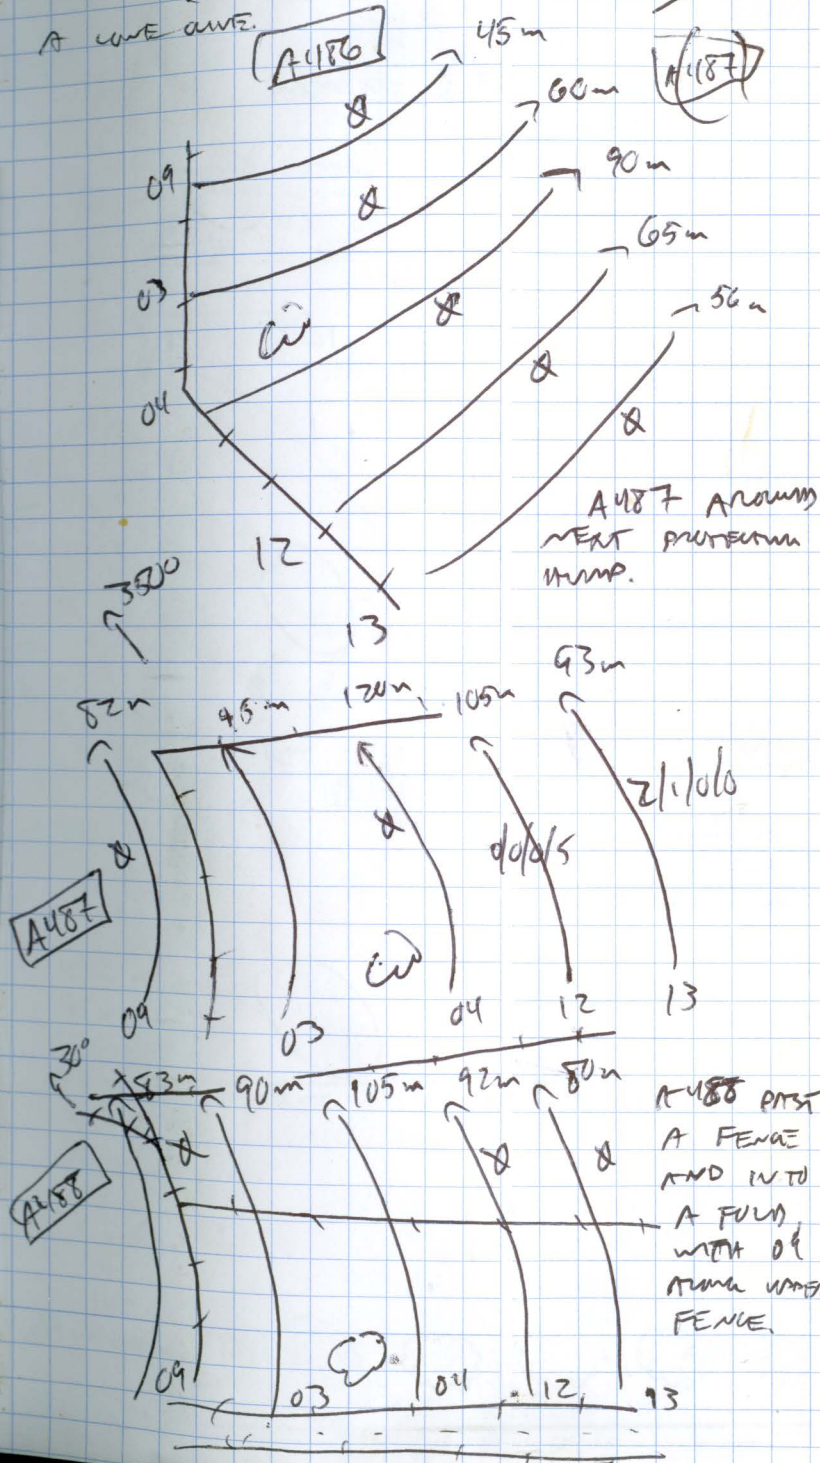 A LONE OLIVE.
A486
45m
A487
60m
09
90m
03
65m
56m
04
12
13
A487 AROUND
NEXT PROTECTION
HUMP.
350°
93m
82m
45m
120m
105m
2/1/0/0
0/0/0/5
A487
09
03
04
12
13
30°
83m
90m
105m
92m
80m
A488
A488 PAST
A FENCE
AND INTO
A FOLD,
WITH 09
ALONG UPPER
FENCE.
09
03
04
12
13